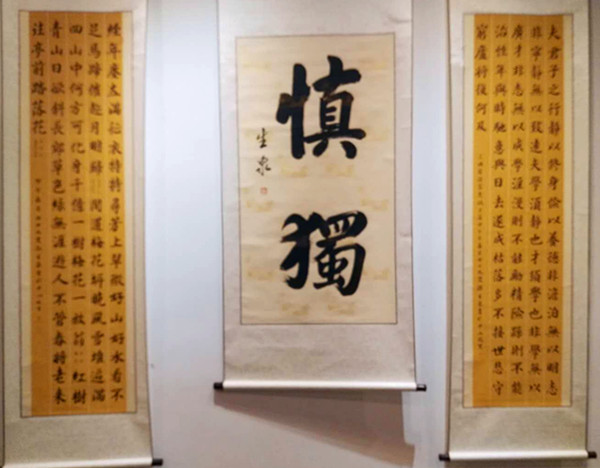 夫君子之行靜以修身儉以養德非澹泊無以明志
非寧靜無以致遠夫學須靜也才須學也非學無以
廣才非志無以成學淫漫則不能勵精險躁則不能
治性年與時馳意與日去遂成枯落多不接世悲守
窮廬將復何及
慎獨
生泉
經年塵土滿征衣特特尋芳上翠微好山好水看不
足馬蹄催趁月明歸 聞道梅花坼曉風雪堆遍滿
四山中何方可化身千億一樹梅花一放翁 紅樹
青山日欲斜長郊草色綠無涯遊人不管春將老來
往亭前踏落花